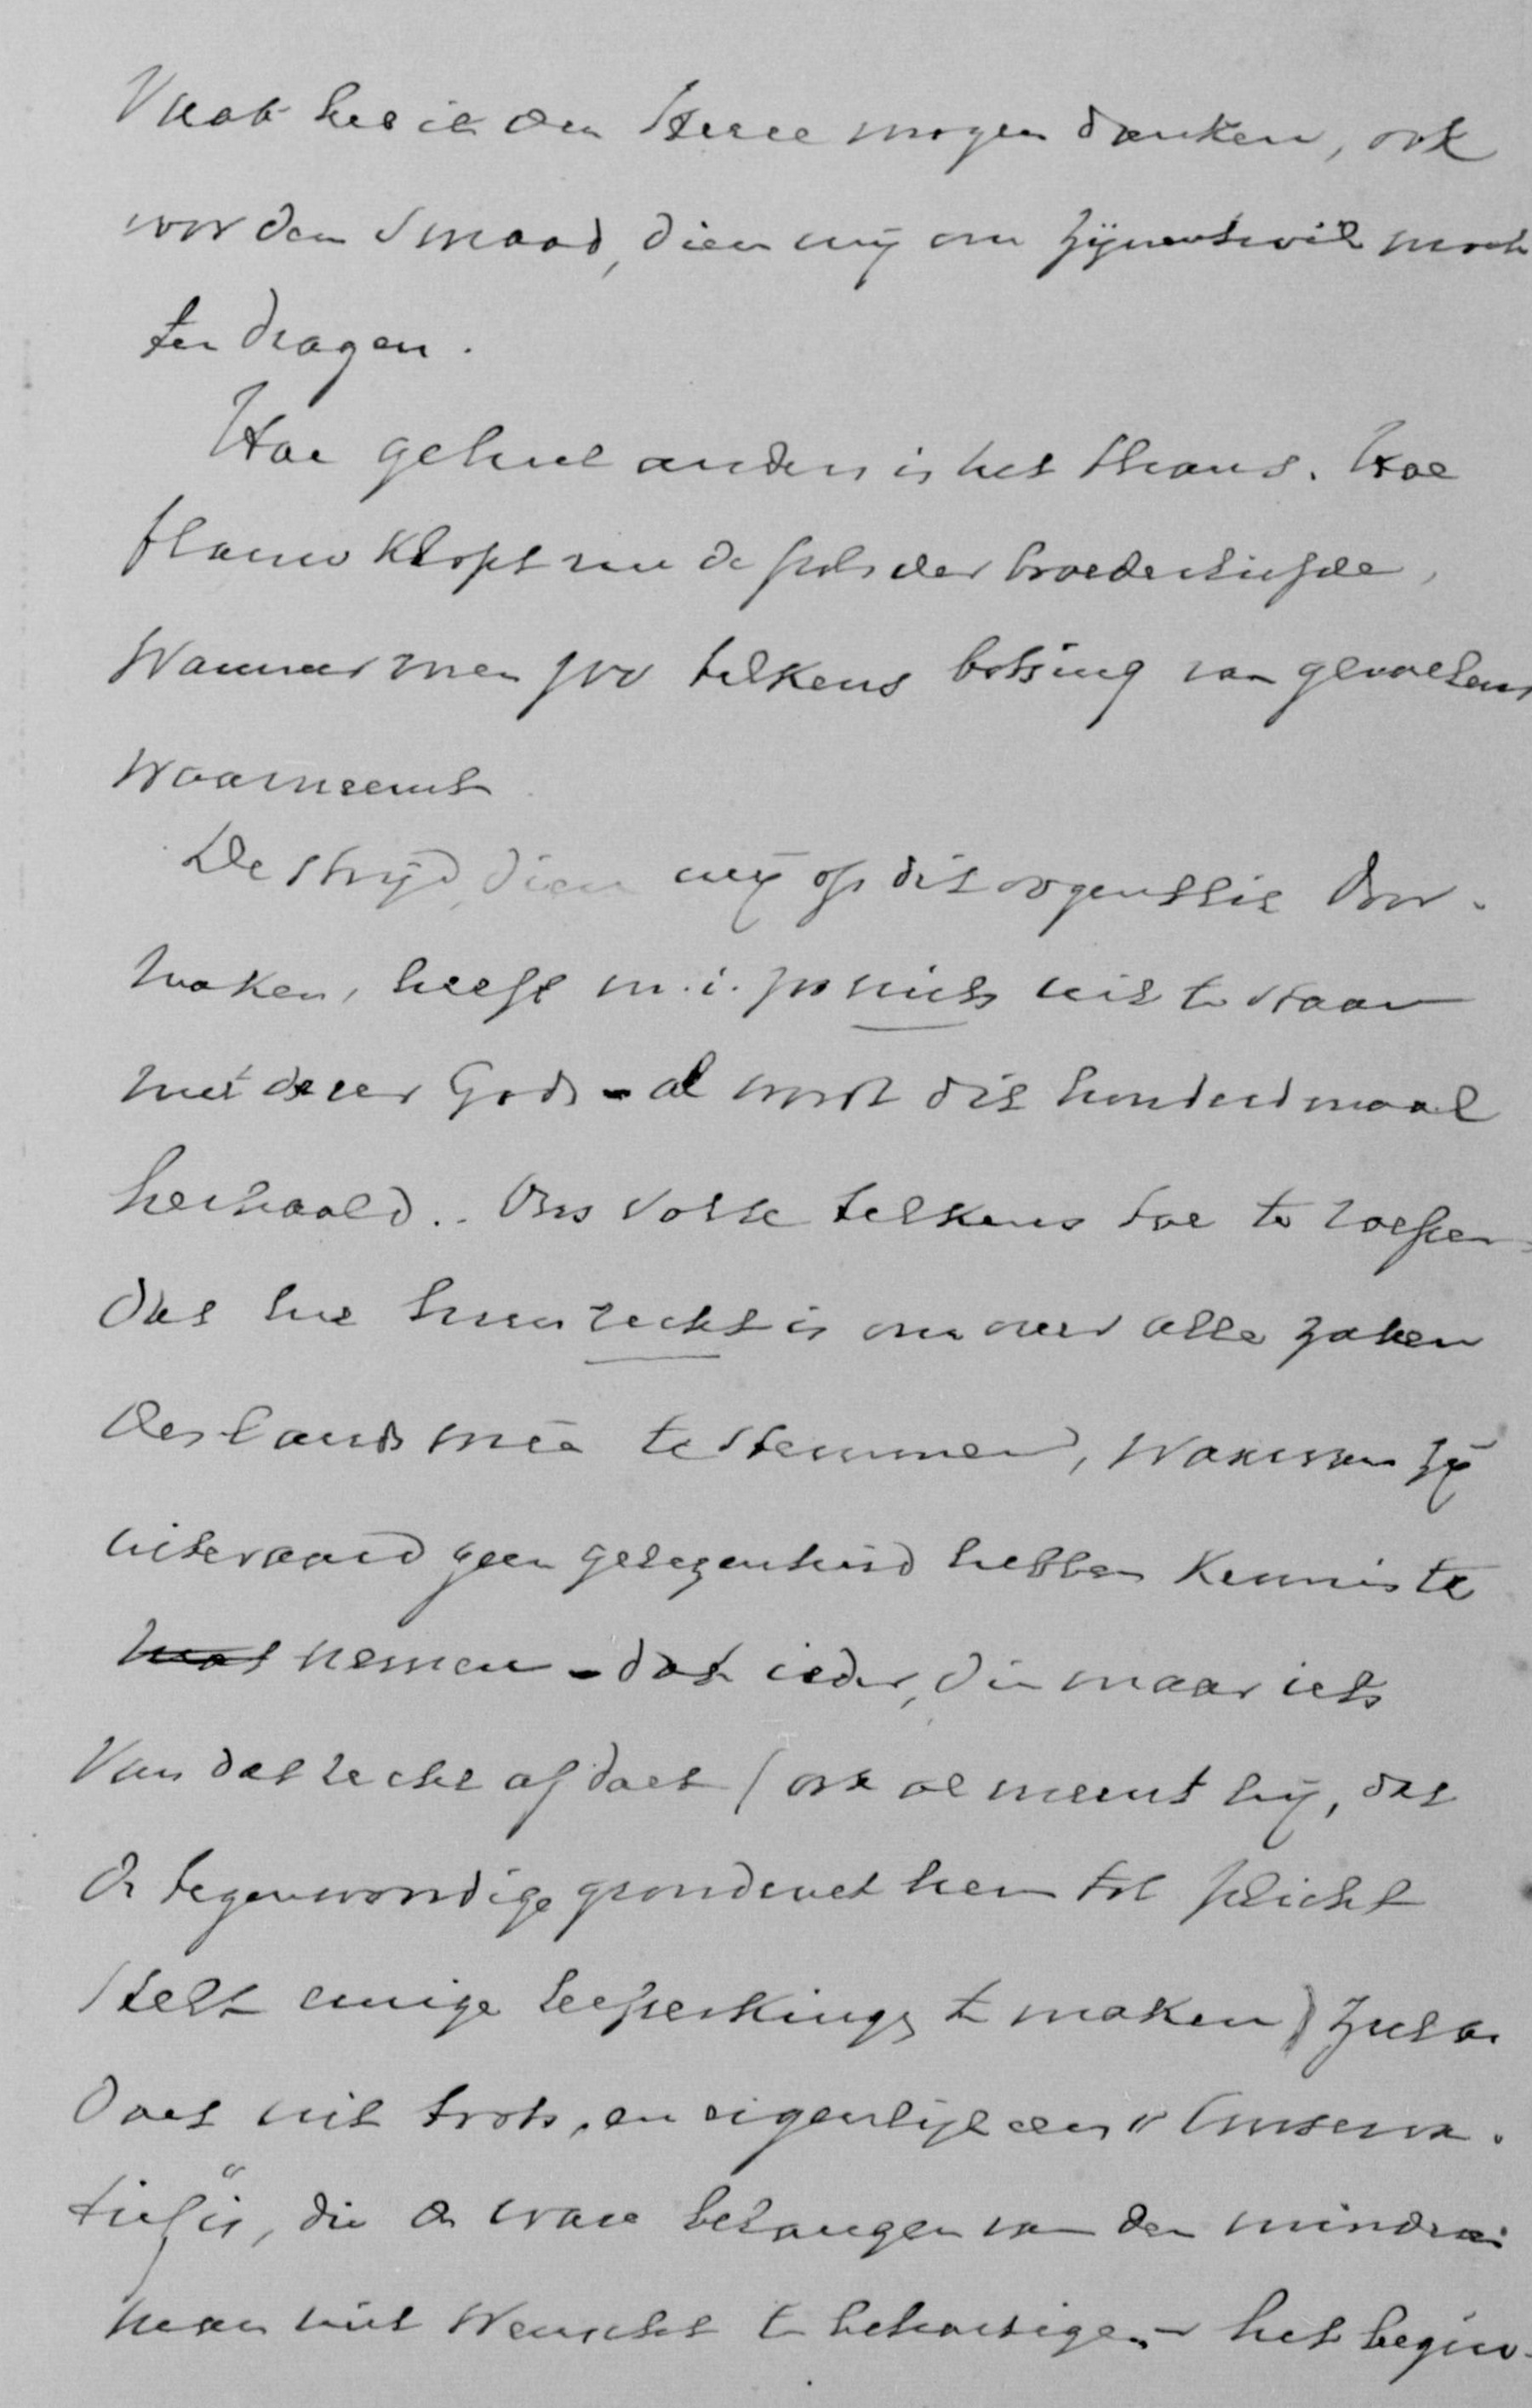 Vaak heb ik den Heere mogen danken, ook
voor den smaad, dien wij om zijnentwil moch
ten dragen.
Hoe geheel anders is het thans. Hoe
flauw klopt nu de pols der broederliefde,
Wanneer men zoo telkens botsing van gevoelens
waarneemt
De strijd, dien wij op dit oogenblik door-
maken, heeft m.i. zoo niets uit te staan
met de eer Gods - al wordt dit honderdmaal
herhaald.. Ons volk telkens toe te roepen
dat het hun recht is om over alle zaken
des lands mée te stemmen, waarvan zij
uiteraard geen gelegenheid hebben kennis te
nemen - dat ieder, die maar iets
Van dat recht afdoet (ook al meent hij, dat
de tegenwoordige grondwet hem tot plicht
stelt eenige beperking te maken) zulks
doet uit trots, en eigenlijk een "Conserva-
tief" is, die de ware belangen van den minderen
man niet wenscht te behartigen - het begin-